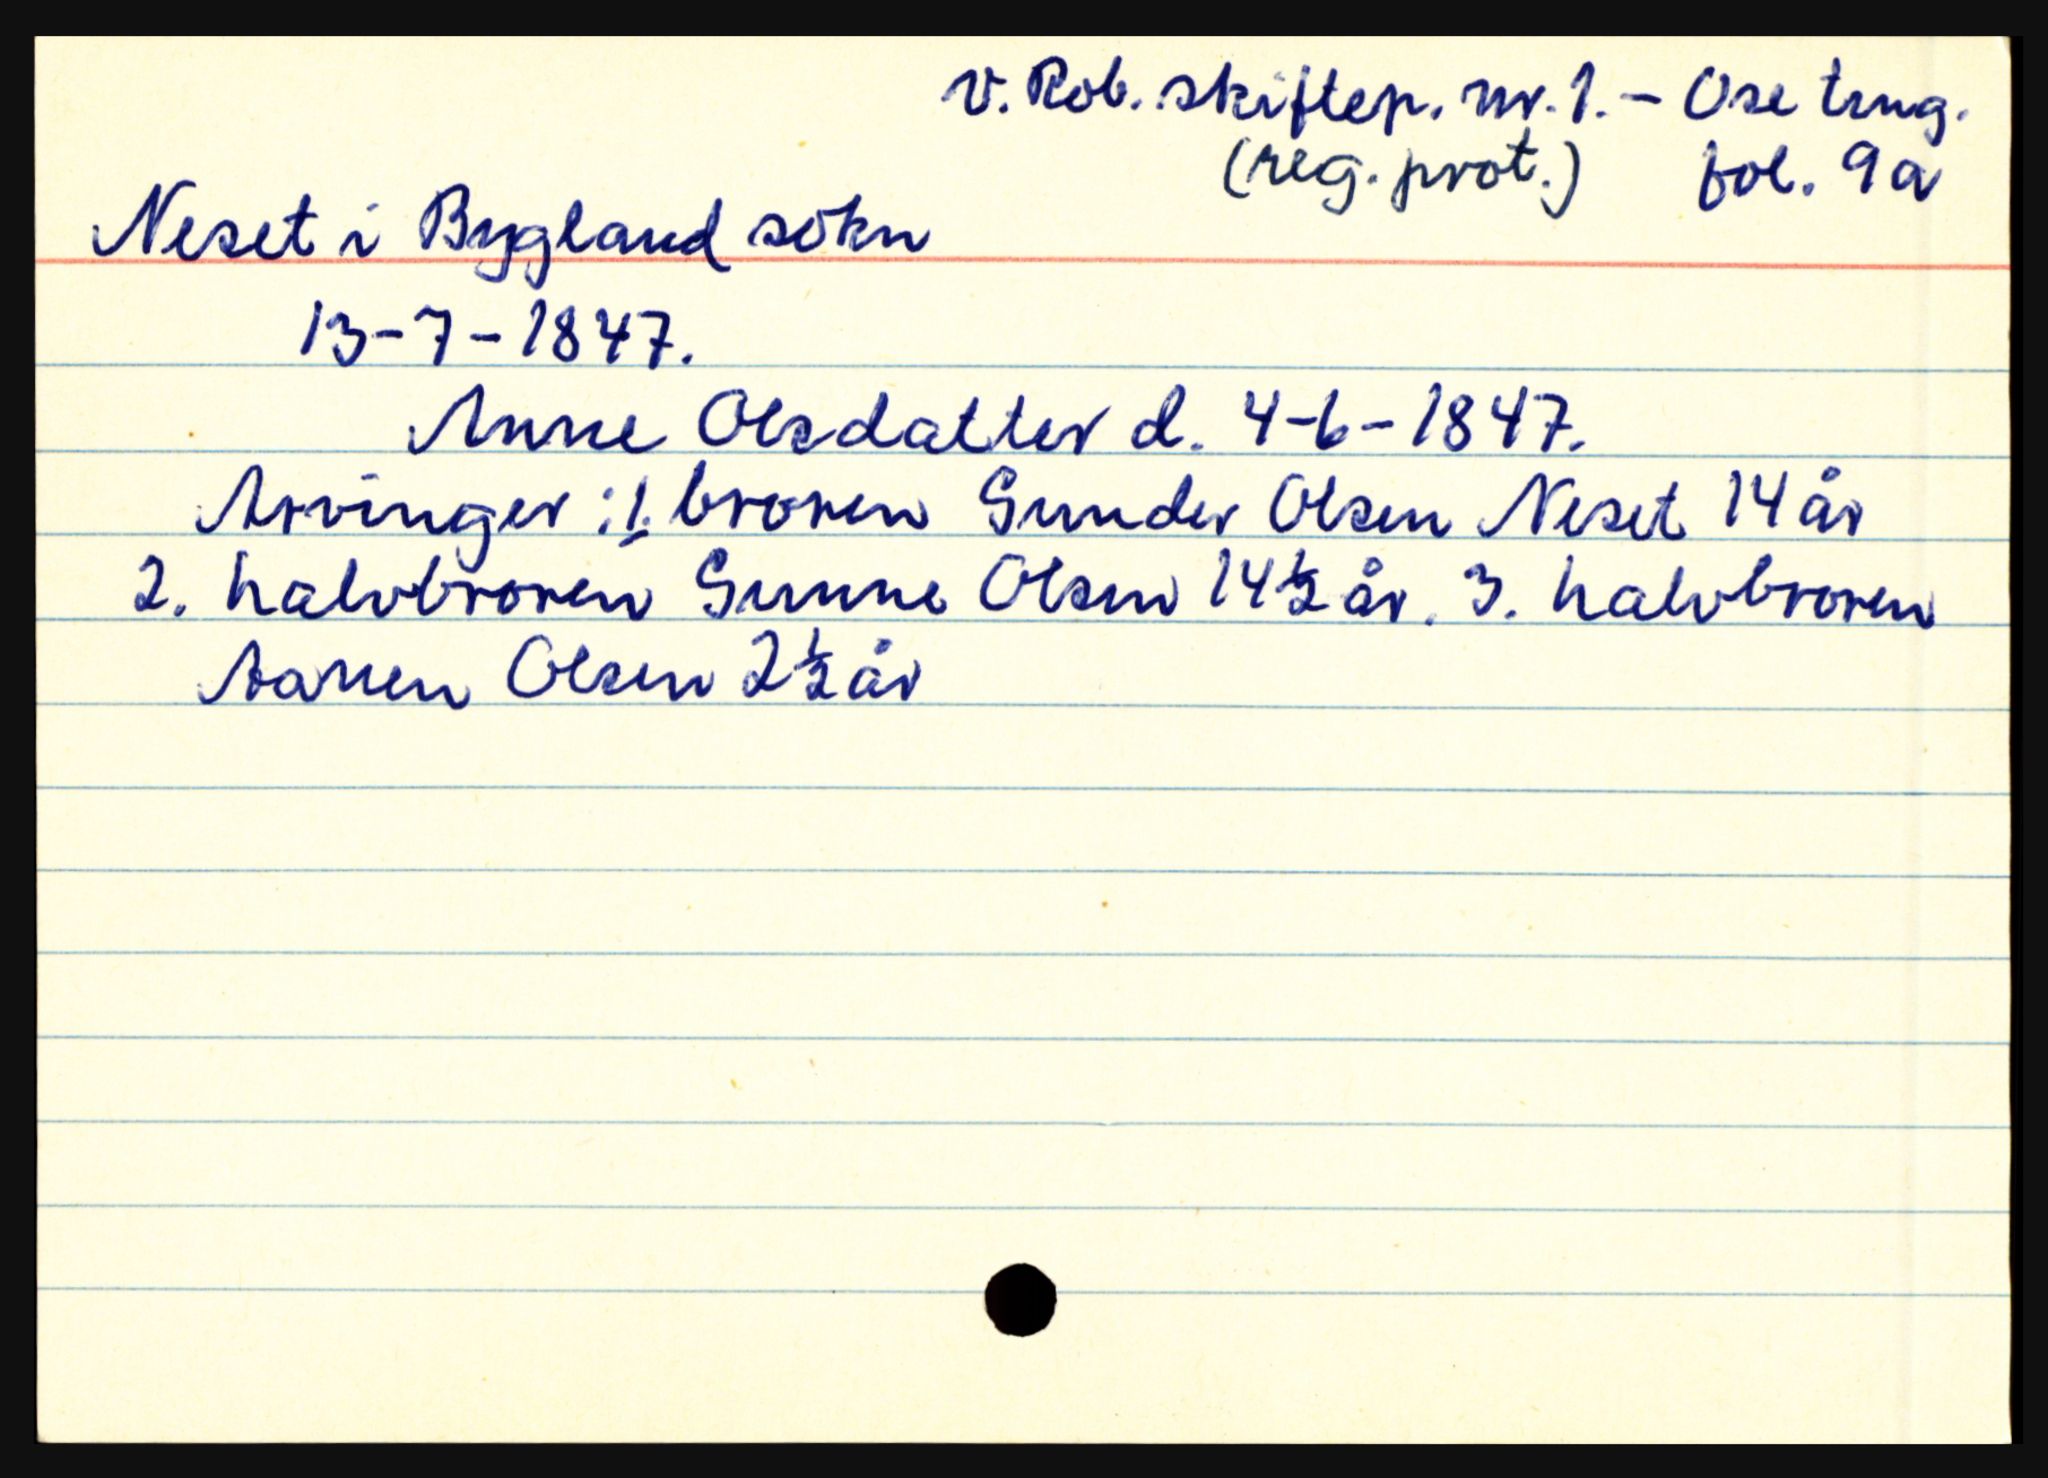 v. Rob. skiftep. nr. 1. - Ose ting.
(reg. prot.) fol. 9a
Neset i Bygland sokn
13-7-1847.
Anne Olsdatter d. 4-6-1847.
Arvinger: 1. broren Gunder Olsen Neset 14 år
2. halvbroren Gunne Olsen 14½ år. 3. halvbroren
Aanen Olsen 2½ år